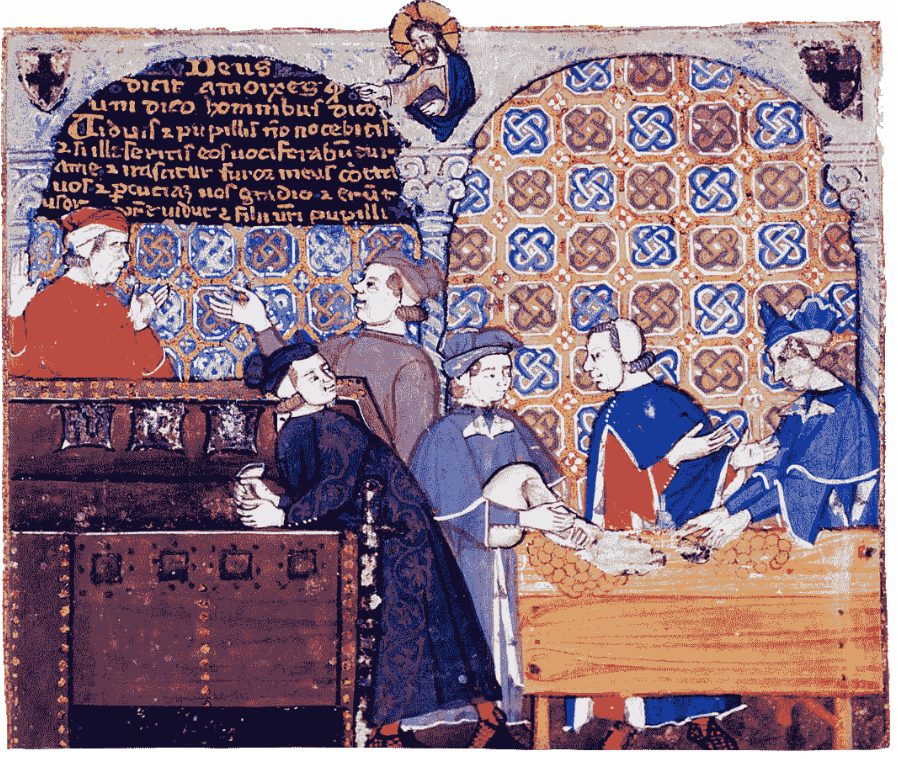 Deus
dicit amoixes q
uni dico hominibus dico
Uiduis ⁊ pupillis nō nocebitis
⁊ si illeseritis eos uociferabūt
ame ⁊ irascitur furor meus cōtra
uos ⁊ pcuciaz uos gladio ⁊ erūt
uxor uidue ⁊ filii uri pupilli